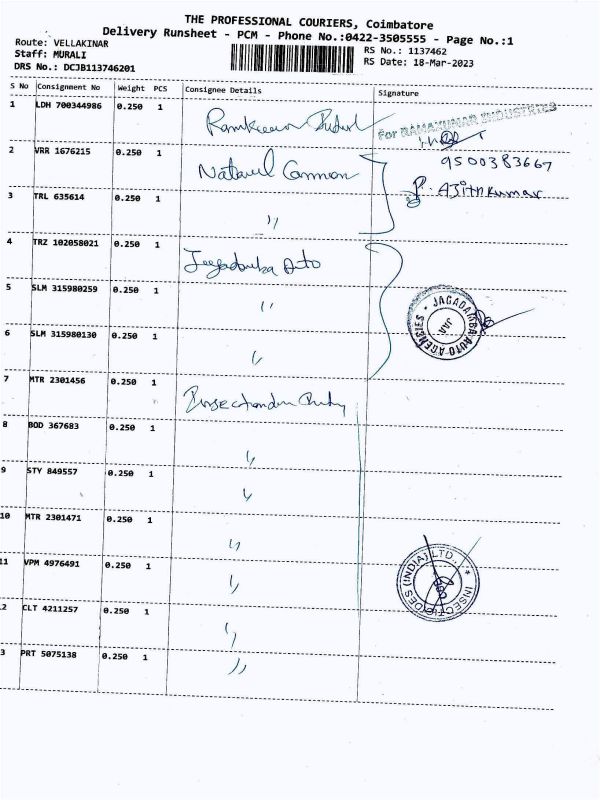 THE PROFESSIONAL COURIERS, Coimbatore
Delivery Runsheet - PCM - Phone No.:0422-3505555 - Page No.:1
Route: VELLAKINAR
Staff: MURALI
DRS No.: DCJB113746201
RS No.: 1137462
RS Date: 18-Mar-2023
S No Consignment No Weight PCS Consignee Details Signature
1 LDH 700344986 0.250 1
For RAMAKUMAR INDUSTRIES
2 VRR 1676215 0.250 1
9500383667
P. AJithkumar
3 TRL 635614 0.250 1 "
4 TRZ 102058021 0.250 1 Auto
5 SLM 315980259 0.250 1 "
JAGADAMBA AUTO AGENCIES
6 SLM 315980130 0.250 1 "
7 MTR 2301456 0.250 1
8 BOD 367683 0.250 1 "
9 STY 849557 0.250 1 "
10 MTR 2301471 0.250 1 "
11 VPM 4976491 0.250 1 "
INSECTICIDES (INDIA) LTD.
2 CLT 4211257 0.250 1 "
3 PRT 5075138 0.250 1 "